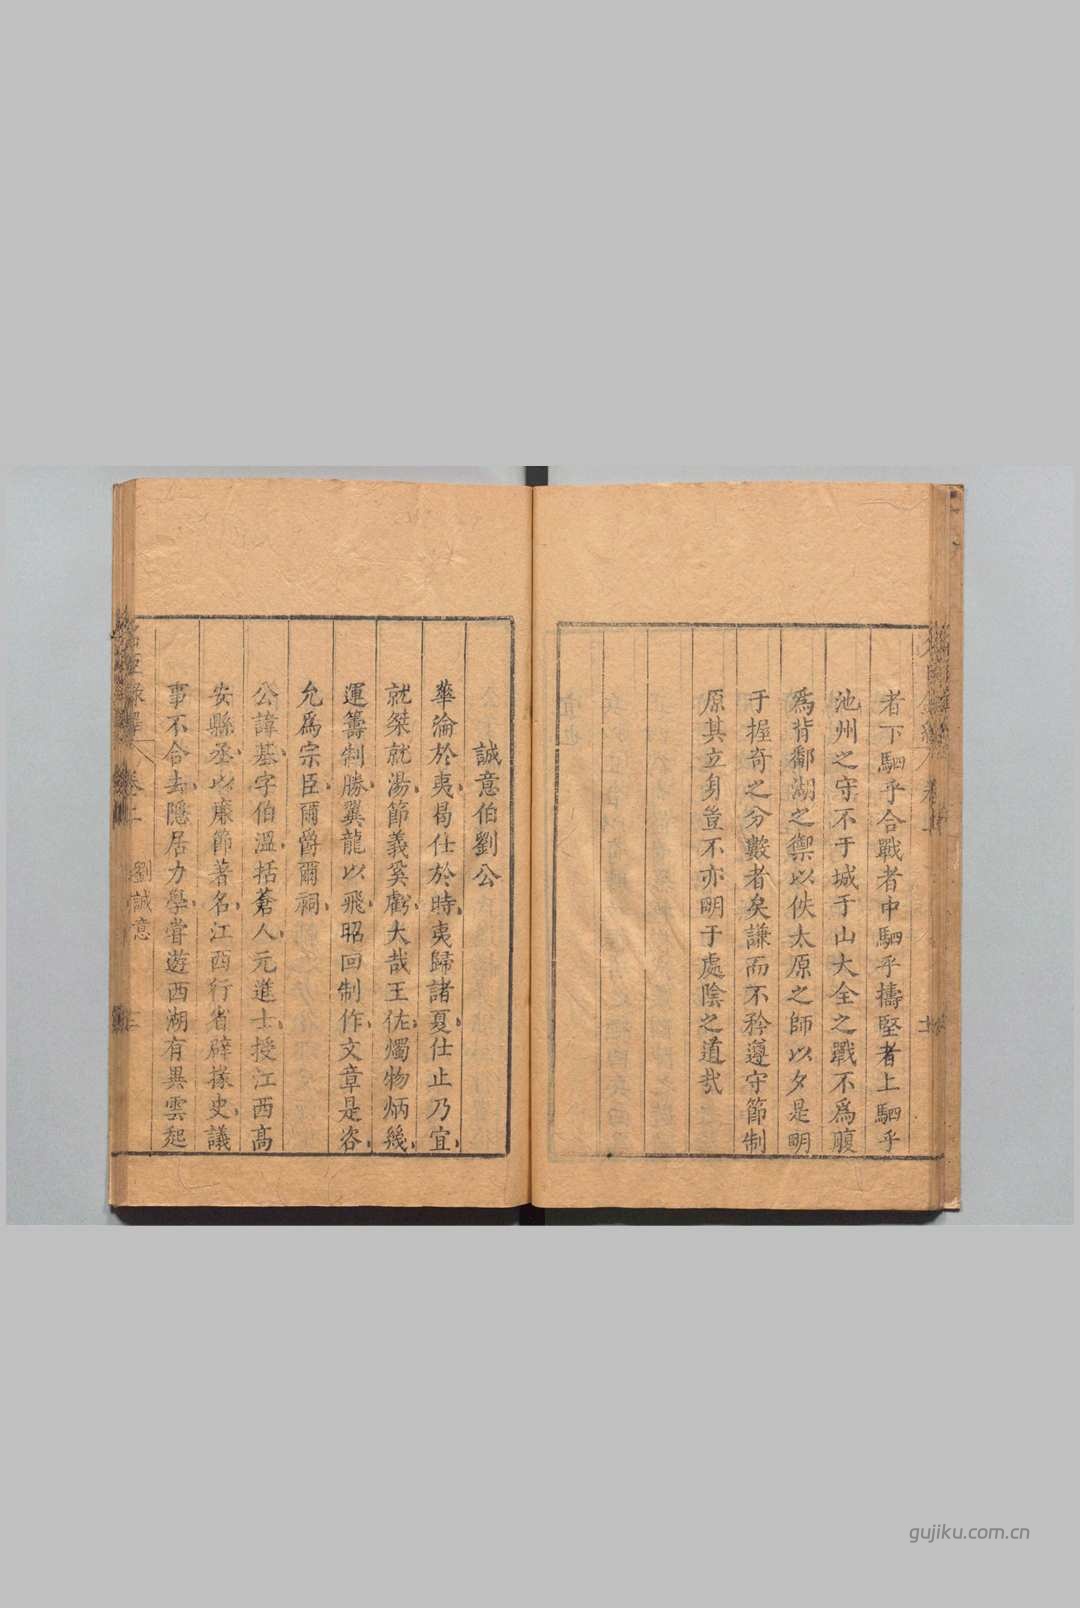 者下駟乎合戰者中駟乎擣堅者上駟乎
池州之守不于城于山大全之戰不爲腹
爲背鄱湖之禦以佚太原之師以夕是明
于握奇之分數者矣謙而不矜遵守節制
原其立身豈不亦明于處陰之道哉
誠意伯劉公
華淪於夷曷仕於時夷歸諸夏仕止乃宜
就桀就湯節義奚虧大哉王佐燭物炳幾
運籌制勝翼龍以飛昭回制作文章是咨
允爲宗臣爾爵爾祠
公諱基字伯溫括蒼人元進士授江西高
安縣丞以廉節著名江西行省辟掾史議
事不合去隱居力學嘗遊西湖有異雲起
卷二
劉誠意
gujiku.com.cn